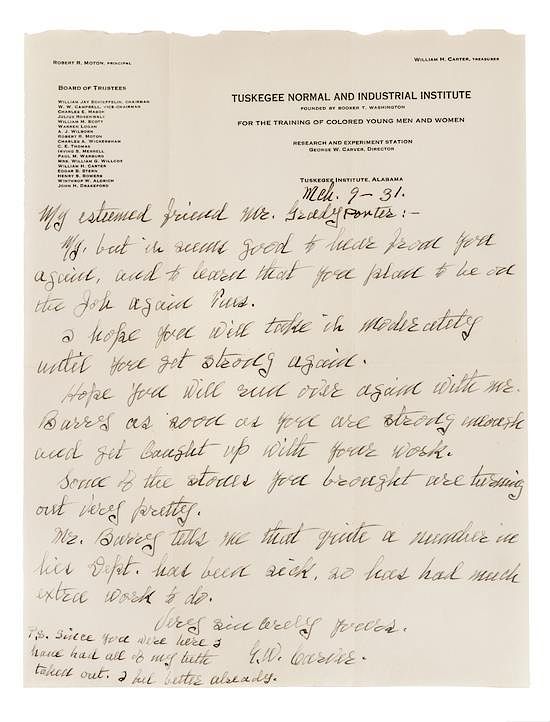 ROBERT R. MOTON, PRINCIPAL
WILLIAM H. CARTER, TREASURER
BOARD OF TRUSTEES
WILLIAM JAY SCHIEFFELIN, CHAIRMAN
W. W. CAMPBELL, VICE-CHAIRMAN
CHARLES E. MASON
JULIUS ROSENWALD
WILLIAM M. SCOTT
WARREN LOGAN
A. J. WILBORN
ROBERT R. MOTON
CHARLES A. WICKERSHAM
C. E. THOMAS
IRVING S. MERRELL
PAUL M. WARBURG
MRS. WILLIAM G. WILLCOX
WILLIAM H. CARTER
EDGAR B. STERN
HENRY S. BOWERS
WINTHROP W. ALDRICH
JOHN H. DRAKEFORD
TUSKEGEE NORMAL AND INDUSTRIAL INSTITUTE
FOUNDED BY BOOKER T. WASHINGTON
FOR THE TRAINING OF COLORED YOUNG MEN AND WOMEN
RESEARCH AND EXPERIMENT STATION
GEORGE W. CARVER, DIRECTOR
TUSKEGEE INSTITUTE, ALABAMA
Mch. 9-31.
My esteemed friend Mr. Grady Porter:-
My, but it seems good to hear from you
again, and to learn that you plan to be on
the job again Tues.
I hope you will take it moderately
until you get strong again.
Hope you will run over again with Mr.
Barry as soon as you are strong enough
and get caught up with your work.
Some of the stones you brought are turning
out very pretty.
Mr. Barry tells me that quite a number in
his Dept. has been sick, so has had much
extra work to do.
Very sincerely yours.
G.W. Carver.
P.S. Since you were here I
have had all of my teeth
taken out. I feel better already.